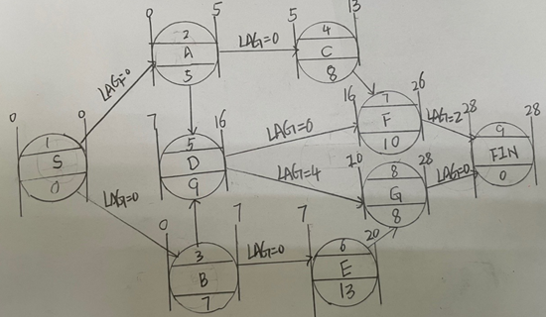 0 5
2
A
5
LAG=0
5 13
4
C
8
LAG=0
0 0
1
S
0
7 16
5
D
9
LAG=0
16 26
7
F
10
LAG=2
28 28
9
FIN
0
LAG=4
20 28
8
G
8
LAG=0
LAG=0
0 7
3
B
7
LAG=0
7 20
6
E
13